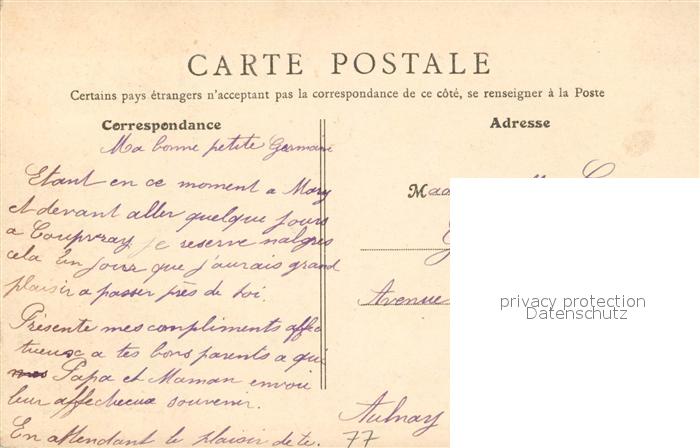 CARTE POSTALE
Certains pays étrangers n'acceptant pas la correspondance de ce côté, se renseigner à la Poste
Correspondance
Adresse
Ma bonne petite Germaine
Etant en ce moment a Mary
et devant aller quelque jours
a Coupvray je reserve malgres
cela un jour que j'aurais grand
plaisir a passer près de toi.
Présente mes compliments affec
tueux a tes bons parents a qui
Papa et Maman envoie
leur affectueux souvenir.
En attendant le plaisir de te
Mad
Avenue
Aulnay
77
privacy protection
Datenschutz